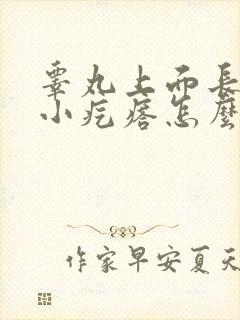 睾丸上面長
小疙瘩怎麼
作家早安夏天